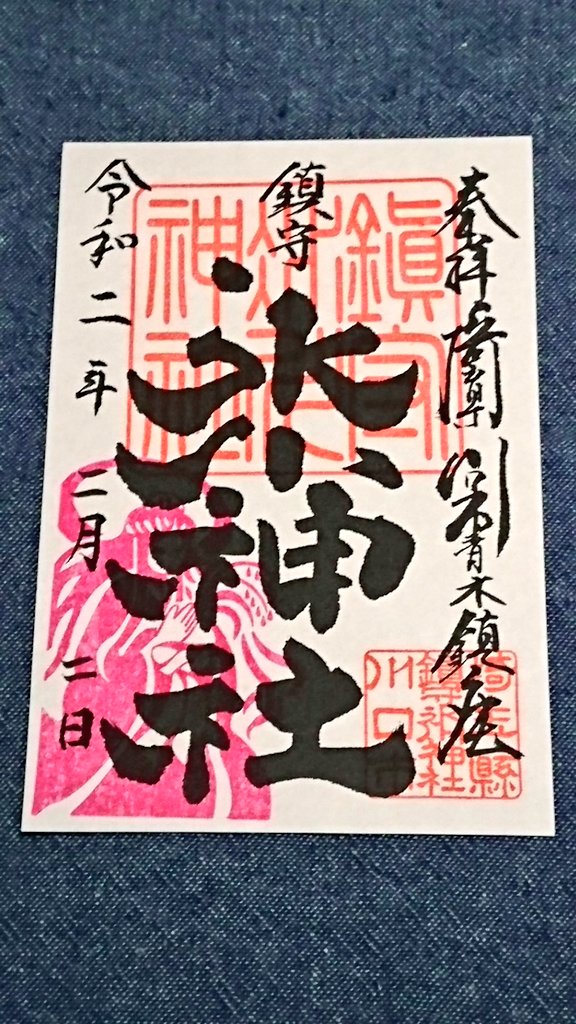 奉拝 埼玉県川口市青木鎮座
鎮守
氷川神社
令和二年二月二日
鎮守
氷川
神社
埼玉縣
鎮守氷川神社
川口市